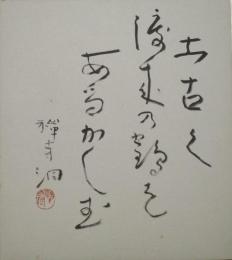 土古く
渡来の鶴を
あるかしむ
禅寺洞